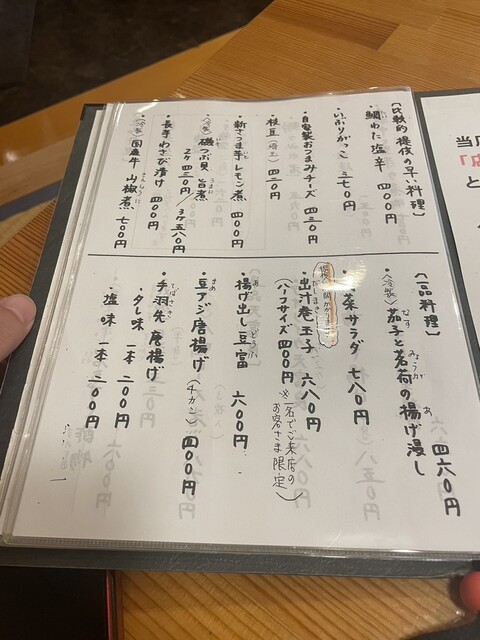 【比較的 提供の早い料理】
・鯛わた塩辛 四〇〇円
・いぶりがっこ 三七〇円
・自家製おつまみチーズ 四三〇円
・枝豆(埼玉) 四二〇
・新さつま芋レモン煮 四〇〇円
・磯つぶ貝 旨煮
2ヶ 四三〇円/3ヶ 五八〇円
・長芋わさび漬け 四〇〇円
国産牛 山椒煮 七〇〇円
さんしょうに
【一品料理】
〈冷製〉茄子と茗荷の揚げ浸し 四六〇円
なす みょうが あ
菜サラダ 七八〇円
・出汁巻玉子 六八〇円
(ハーフサイズ 四〇〇円 ※一名でご来店の
お客さま限定)
揚げ出し豆富 六〇〇円
豆アジ唐揚げ(チカン) 四〇〇円
・手羽先 唐揚げ
てばさき
・タレ味 一本 二〇〇円
・塩味 一本 二〇〇円
当店